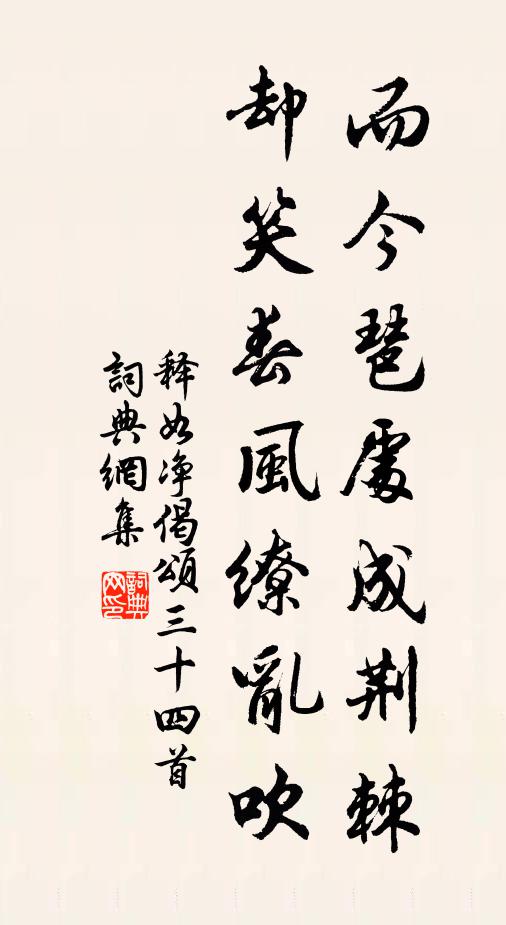 而今琶處成荆棘
却笑春風繚亂吹
释如净偈頌三十四首
詞典網集
詞典网印